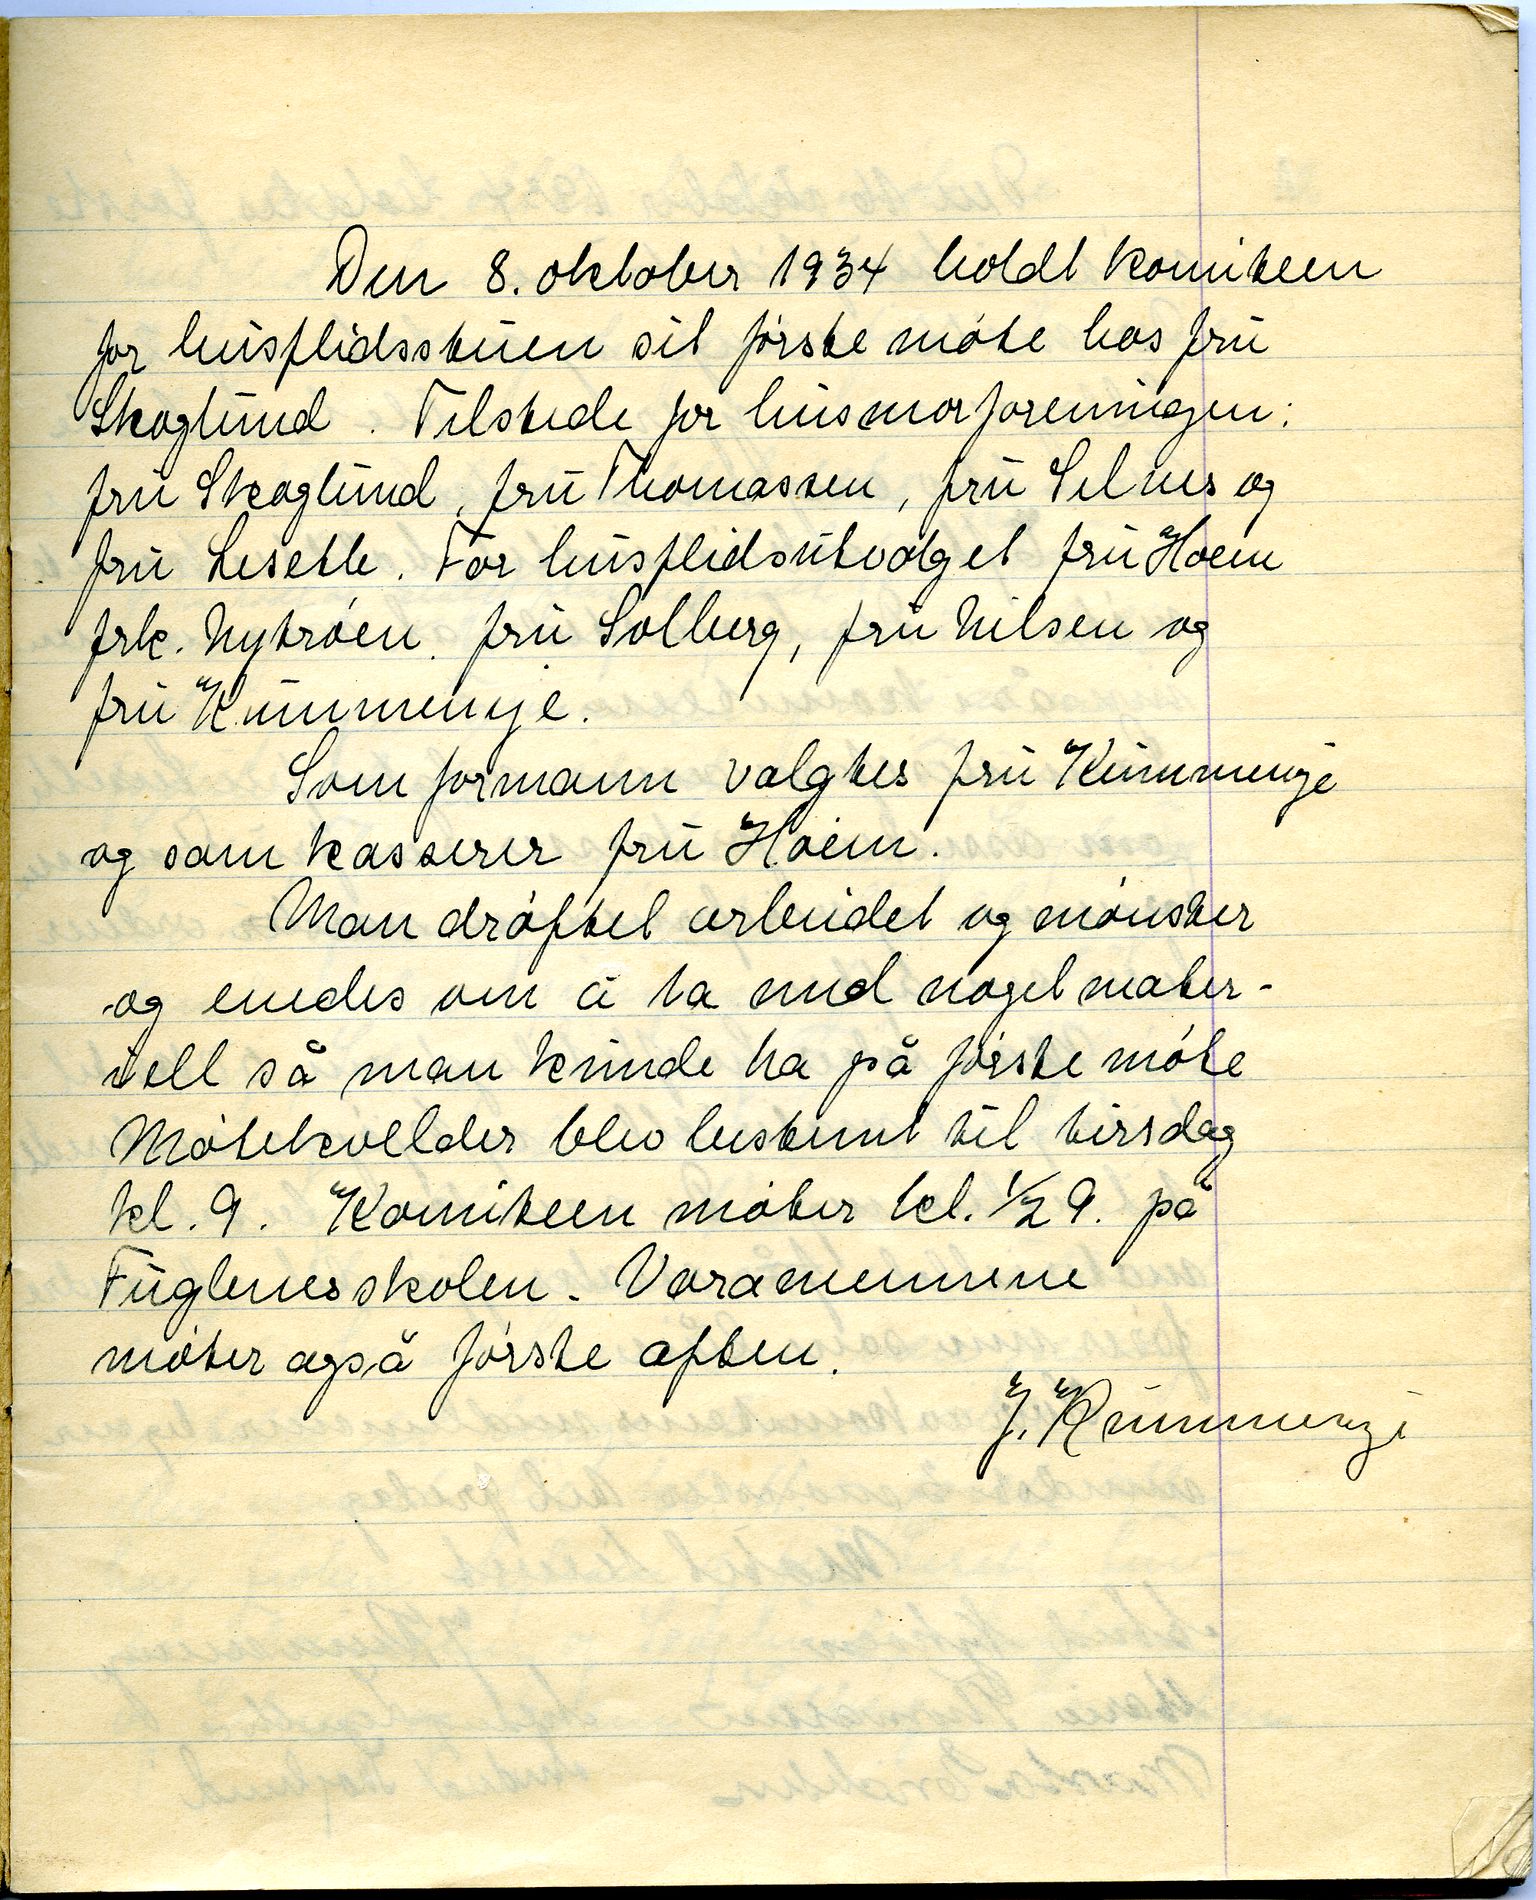 Den 8. oktober 1934 holdt komiteen
for husflidsstuen sit første møte hos fru
Skoglund. Tilstede for husmorforeningen:
fru Skoglund, fru Thomassen, fru Selnes og
fru Leseth. For husflidsutvalget fru Hoem
frk. Nytrøen. fru Solberg, fru Nilsen og
fru Kummenje.
Som formann valgtes fru Kummenje
og som kasserer fru Hoem.
Man drøftet arbeidet og mønster
og enedes om å ta med noget mater-
iell så man kunde ha på første møte
Møtekvelder blev bestemt til tirsdag
kl. 9. Komiteen møter kl. ½ 9. på
Fuglenesskolen. Varamennene
møter også første aften.
J. Kummenje